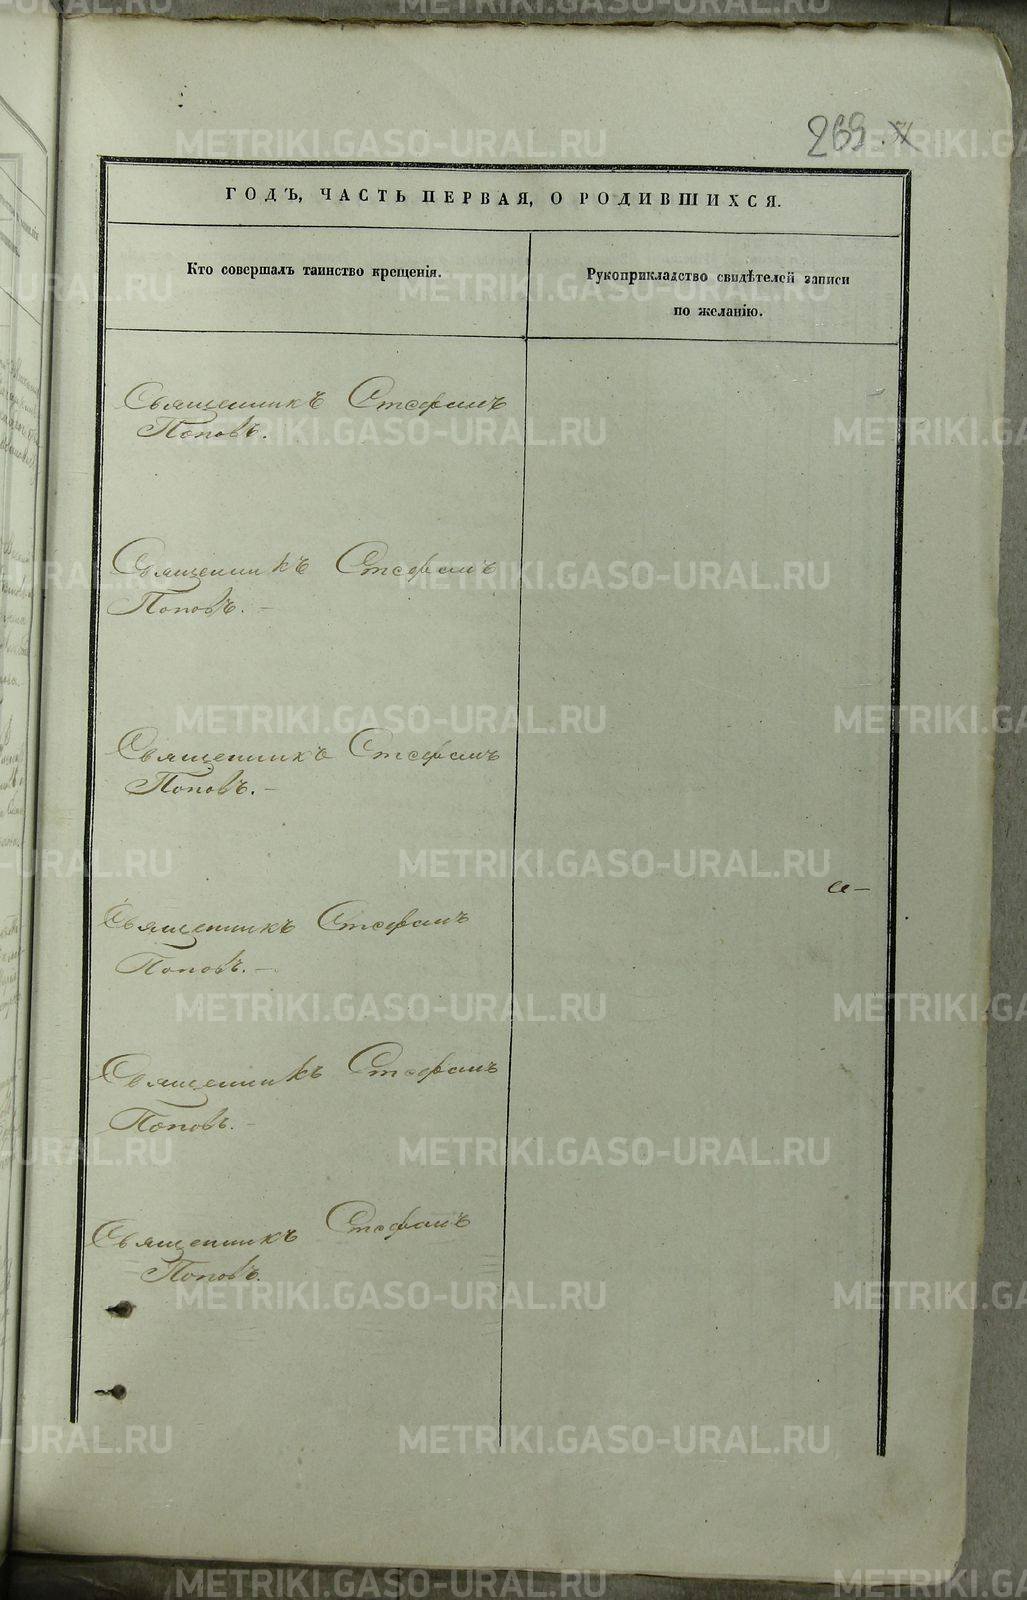 269.
ГОДЪ, ЧАСТЬ ПЕРВАЯ, О РОДИВШИХСЯ.
Кто совершалъ таинство крещенія.
Рукоприкладство свидѣтелей записи
по желанію.
Священникъ Стефанъ
Поповъ.
Священникъ Стефанъ
Поповъ. –
Священникъ Стефанъ
Поповъ. –
Священникъ Стефанъ
Поповъ. –
Священникъ Стефанъ
Поповъ. –
Священникъ Стефанъ
Поповъ.
METRIKI.GASO-URAL.RU